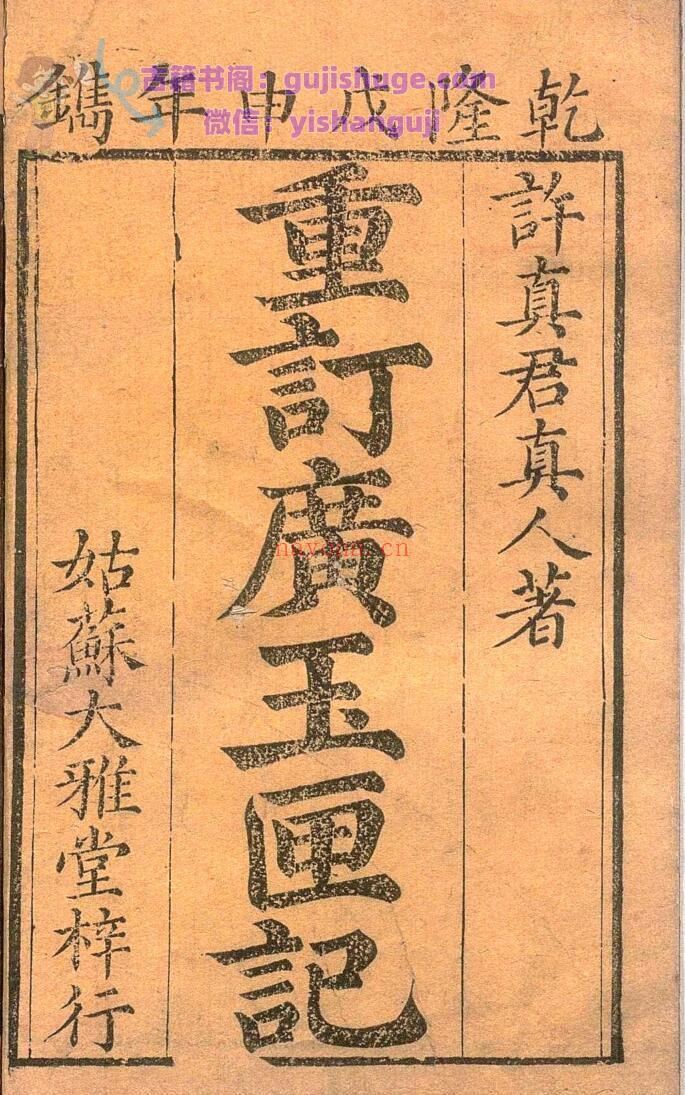 乾隆戊申年鐫
許真君真人著
重訂廣玉匣記
姑蘇大雅堂梓行
古籍书阁：gujishuge.com
微信：yishanguji
nayona.cn